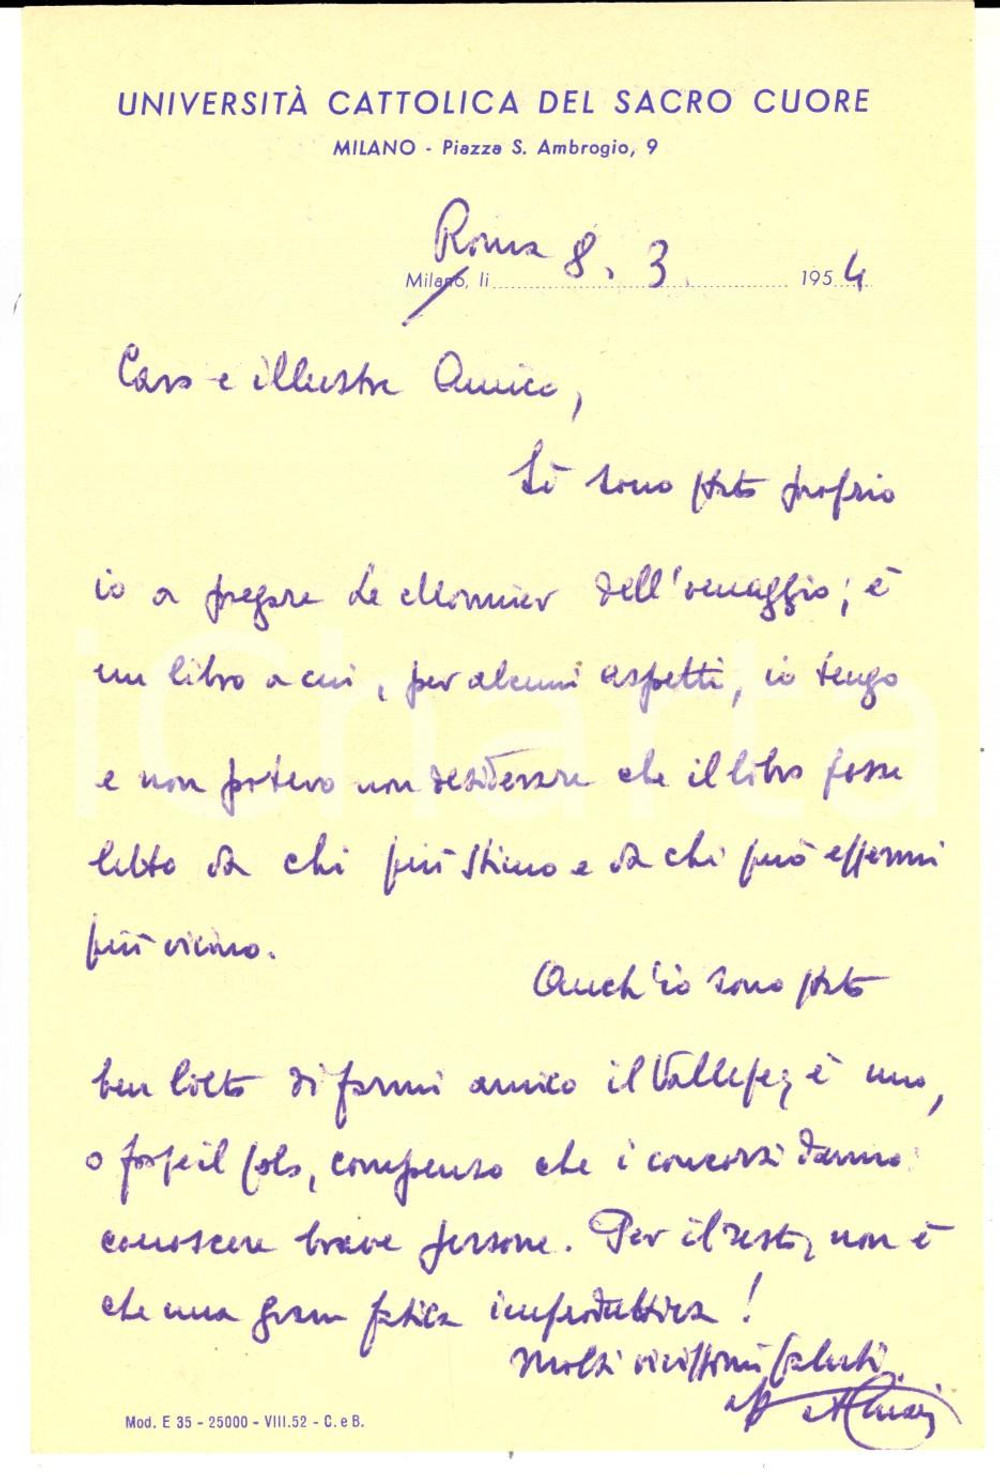 UNIVERSITÀ CATTOLICA DEL SACRO CUORE
MILANO - Piazza S. Ambrogio, 9
Roma 8. 3.
Milano, li 1954
Caro e illustre Amico,
Sì sono stato proprio
io a pregare Le Monnier dell'omaggio; è
un libro a cui, per alcuni aspetti, io tengo
e non potevo non desiderare che il libro fosse
letto da chi più stimo e da chi può essermi
più vicino.
Anch'io sono stato
ben lieto di farmi amico il Vallese; è uno,
o forse il solo, compenso che i concorsi danno:
conoscere brave persone. Per il resto, non è
che una gran fatica improduttiva!
Molti vivissimi saluti.
Mod. E 35 - 25000 - VIII.52 - C. e B.
iCharta